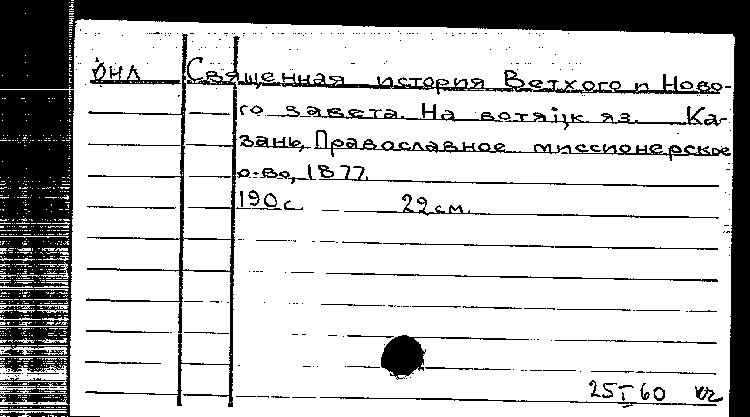 ОНЛ Священная история Ветхого и Ново-
го завета. На вотяцк яз. Ка-
зань, Православное миссионерское
о-во, 1877.
190 с. 22 см.
25 I 60